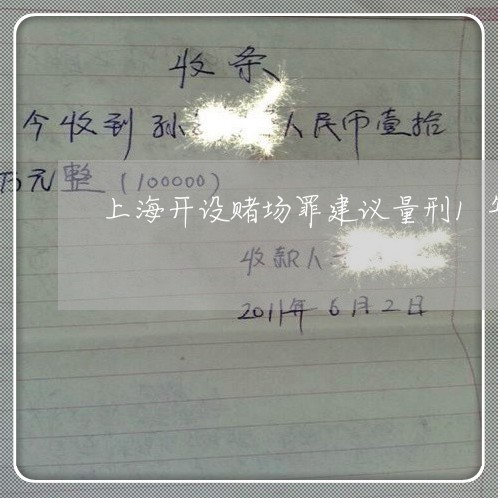 收条
今收到孙 人民币壹拾
万元整（100000）
上海开设赌场罪建议量刑1
收款人
2011年6月2日